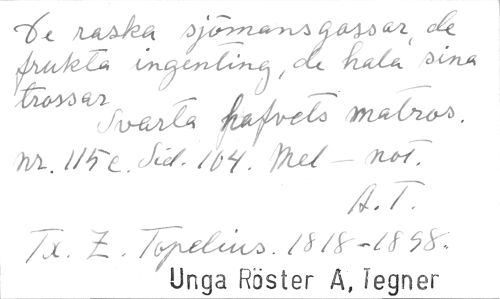 De raska sjömansgossar, de
frukta ingenting, de hala sina
trossar
Svarta hafvets matros.
nr. 115 c. Sid. 104. Mel - not.
A.T.
Tx. Z. Topelius. 1818-1898.
Unga Röster A, Tegner